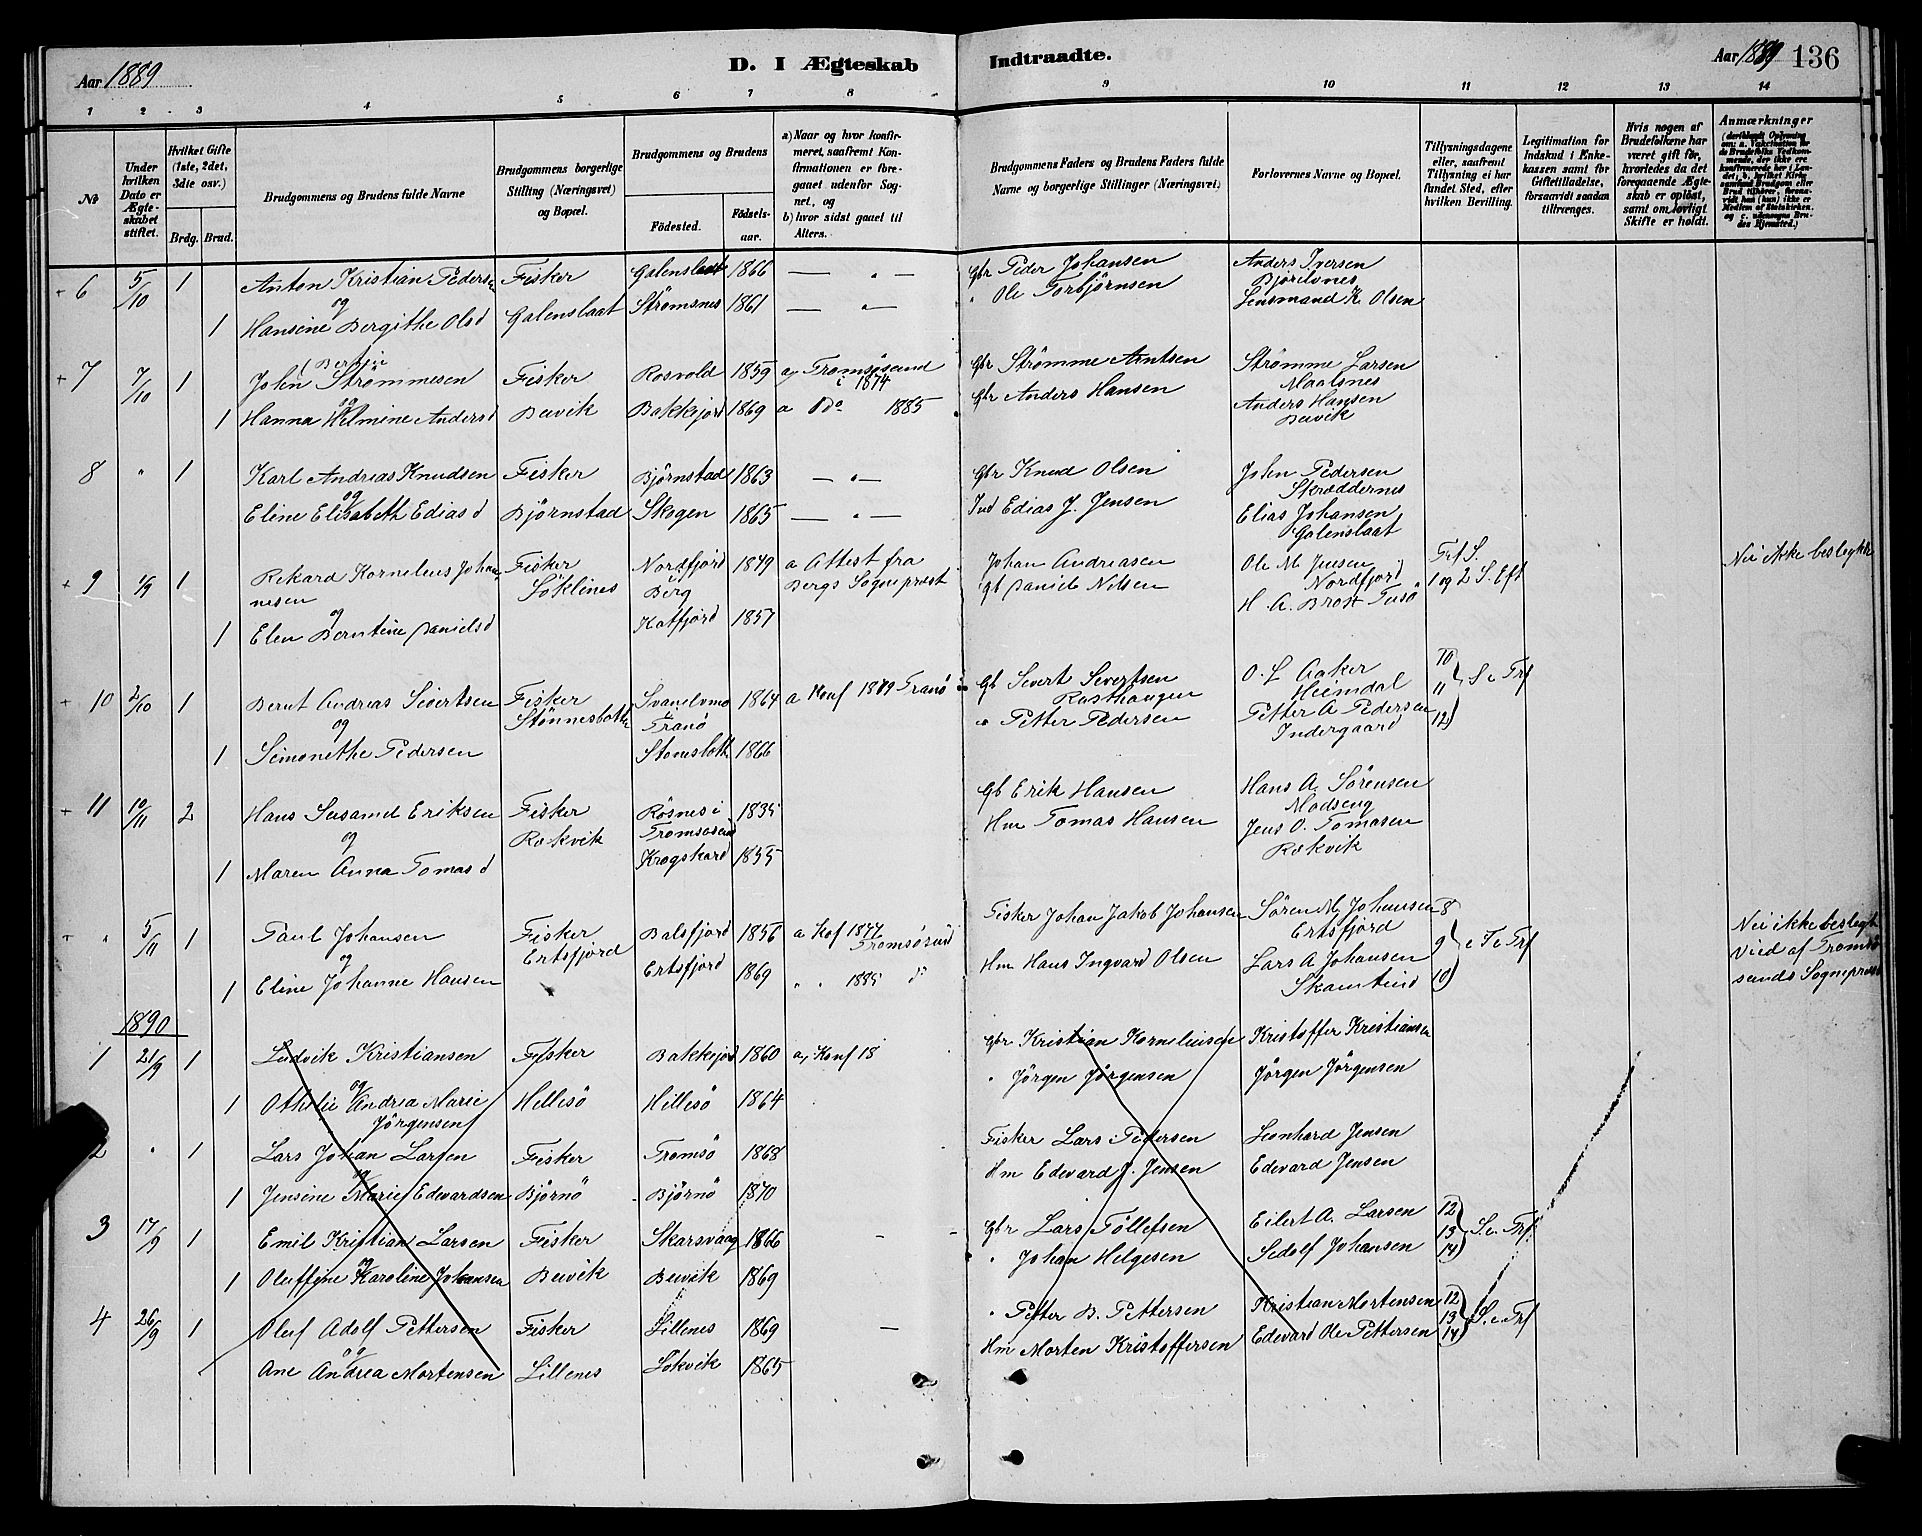 Aar 1889
D. I Ægteskab
Indtraadte.
Aar 1889
136
1 2 3 4 5 6 7 8 9 10 11 12 13 14
No
Under hvilken Dato er Ægteskabet stiftet.
Hvilket Gifte (1ste, 2det, 3die osv.)
Brdg. Brud.
Brudgommens og Brudens fulde Navne
Brudgommens borgerlige Stilling (Næringsvei) og Bopæl.
Brudgommens og Brudens
Fødested.
Fødselsaar.
a) Naar og hvor konfirmeret, saafremt Konfirmationen er foregaaet udenfor Sognet, og
b) hvor sidst gaaet til Alters.
Brudgommens Faders og Brudens Faders fulde Navne og borgerlige Stillinger (Næringsvei)
Forlovernes Navne og Bopæl.
Tillysningsdagene eller, saafremt Tillysning ei har fundet Sted, efter hvilken Bevilling.
Legitimation for Indskud i Enkekassen samt for Giftetilladelse, forsaavidt saadan tiltrænges.
Hvis nogen af Brudefolkene har været gift før, hvorledes da det foregaaende Ægteskab er opløst, samt om lovligt Skifte er holdt.
Anmærkninger
+ 6 5/10 1 Anton Kristian Peders Fisker Galenslaat 1866 — " — Gbr Peder Johansen Anders Iversen
og " Ole Torbjörnsen Bjorelvnes
1 Hansine Bergithe Olsd Galenslaat Strömsnes 1861 — " — Lensmand K. Olsen
+ 7 7/10 1 John Strömmesen Fisker Rosvold 1859 a, Tromsösund i 1874 Gbr Strömme Arntsen Strömme Larsen
og Maalsnes
1 Hanna Helmine Andersd Buvik Bakkejord 1869 a Do 1885 Gbr Anders Hansen Anders Hansen
Buvik
8 " 1 Karl Andreas Knudsen Fisker Björnstad 1863 — " — Gbr Knud Olsen John Pedersen
og Skræddernes
Eline Elisabeth Ediasd Björnstad Skogen 1865 — " — Ind Edias J. Jensen Elias Johansen
Galenslaat
+ 9 1/9 1 Rekard Kornelius Johannesen Fisker Nordfjord 1849 a Attest fra Johan Andreasen Ole M Jensen Trf S. Nei ikke beslegt
Söklines Berg Bergs Sogneprest gb Daniel Nilsen Nordfjord 1 og 2 S. Eft
og H. A. Brox Tusö
1 Elen Berntine Danielsd Katfjord 1857
+ 10 2/10 1 Bernt Andreas Sivertsen Fisker Svanelvmo 1864 a Konf 1879 Tranö Gb Sivert Sivertsen O. L Aaker 10
og Stönnesbotn Tranö Rosthaugen Heimdal 11 S e Trf
" Petter Pedersen Petter A Pedersen 12
1 Simonethe Pedersen Stonesbotn 1866 Indergaard
+ 11 10/11 2 Hans Susand Eriksen Fisker Rösnes i 1835 Gb Erik Hansen Hans A. Sörensen
og Rekvik Tromsösund Hm Tomas Hansen Modseng
1 Maren Anna Tomasd Krogskard 1855 Jens O. Tomasen
Rekvik
+ " 5/11 1 Paul Johansen Fisker Balsfjord 1856 a Kof 1877 Fisker Johan Jakob Johansen Sören M. Johansen 8 Nei ikke beslegt
og Ertsfjord Tromsösund Ertsfjord 9 e T e Trf Vied af Tromsö
1 Eline Johanne Hansen Ertsfjord 1869 " " 1885 do Hm Hans Ingvard Olsen Lars A Johansen 10 sunds Sogneprest
1890
1 21/9 1 Ludvik Kristiansen Fisker Bakkejord 1860 a, Konf 18 Gbr Kristian Korneliusen Kristoffer Kristiansen
og
1 Othelie Andrea Marie Jörgensen Hillesö Hillesö 1864 " Jörgen Jörgensen Jörgen Jörgensen
2 " 1 Lars Johan Larsen Fisker Tromsö 1868 Fisker Lars Pedersen Leonhard Jensen
og
1 Jensine Marie Edevardsen Björnö Björnö 1870 Hm Edevard J. Jensen Edevard Jensen
3 17/9 1 Emil Kristian Larsen Fisker Skarsvaag 1866 Gbr Lars Töllefsen Eilert A. Larsen 12
og 13 S. e. Trf.
1 Oluffine Karoline Johansen Buvik Buvik 1869 " Johan Helgesen Sedolf Johansen 14
4 26/9 1 Oluf Adolf Pettersen Fisker Lillenes 1869 — " Petter B. Pettersen Kristian Mortensen 12
og 13 S. e. Trf
Ane Andrea Mortensen Lillenes Lökvik 1865 Hm Morten Kristoffersen Edevard Ole Pettersen 14